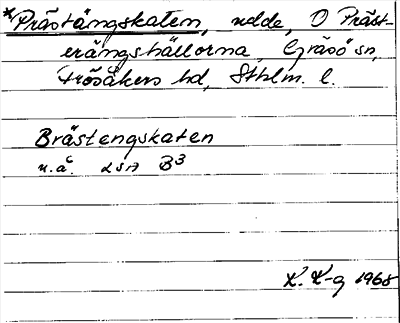 *Prästängskaten, udde, O Präst-
erängshällorna, Gräsö sn,
Frösåkers hd, Sthlm. l.
Brästengskaten
u.å. LSA B3
K. K-g 1968